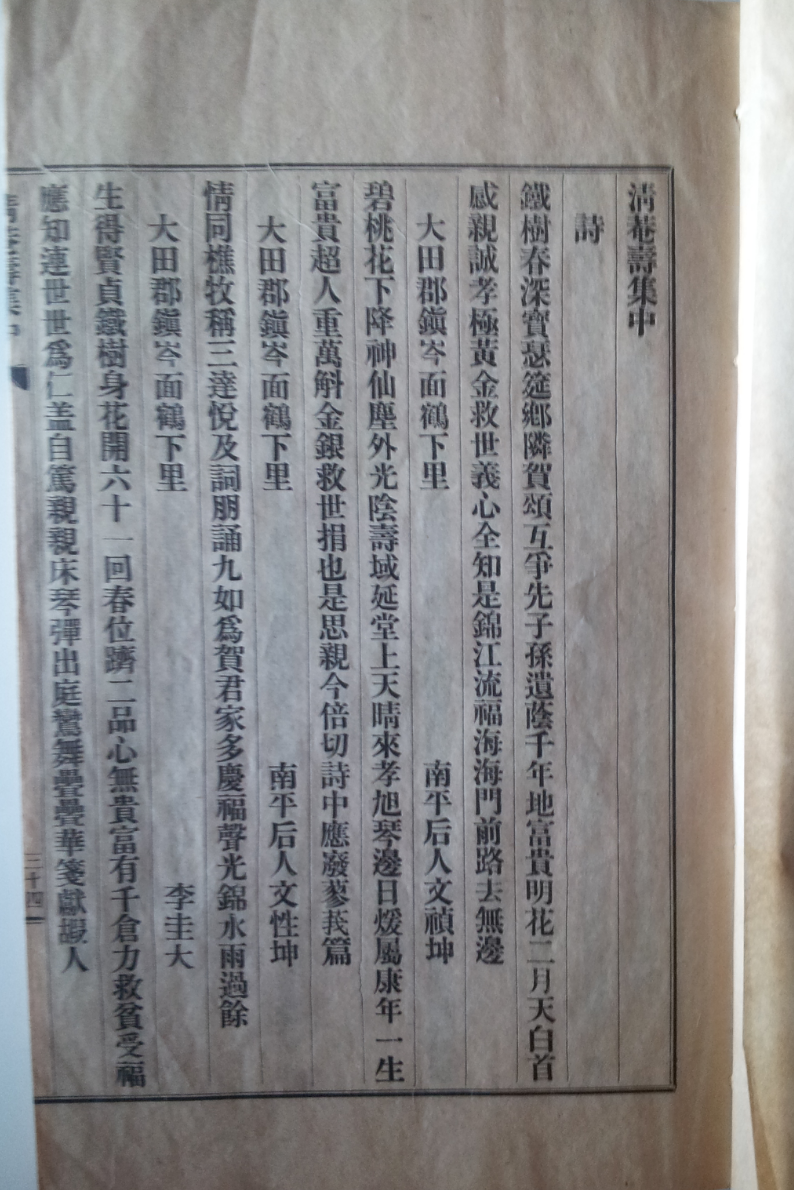 淸菴壽集中
詩
鐵樹春深寶瑟筵鄕隣賀頌互爭先子孫遺蔭千年地富貴明花二月天白首
感親誠孝極黃金救世義心全知是錦江流福海海門前路去無邊
大田郡鎭岑面鶴下里 南平后人文禎坤
碧桃花下降神仙塵外光陰壽域延堂上天晴來孝旭琴邊日煖屬康年一生
富貴超人重萬斛金銀救世捐也是思親今倍切詩中應廢蓼莪篇
大田郡鎭岑面鶴下里 南平后人文性坤
情同樵牧稱三達悅及詞朋誦九如爲賀君家多慶福聲光錦水雨過餘
大田郡鎭岑面鶴下里 李圭大
生得賢貞鐵樹身花開六十一回春位躋二品心無貴富有千倉力救貧受福
應知連世世爲仁盖自篤親親床琴彈出庭鸞舞疊疊華箋獻嘏人
三十四